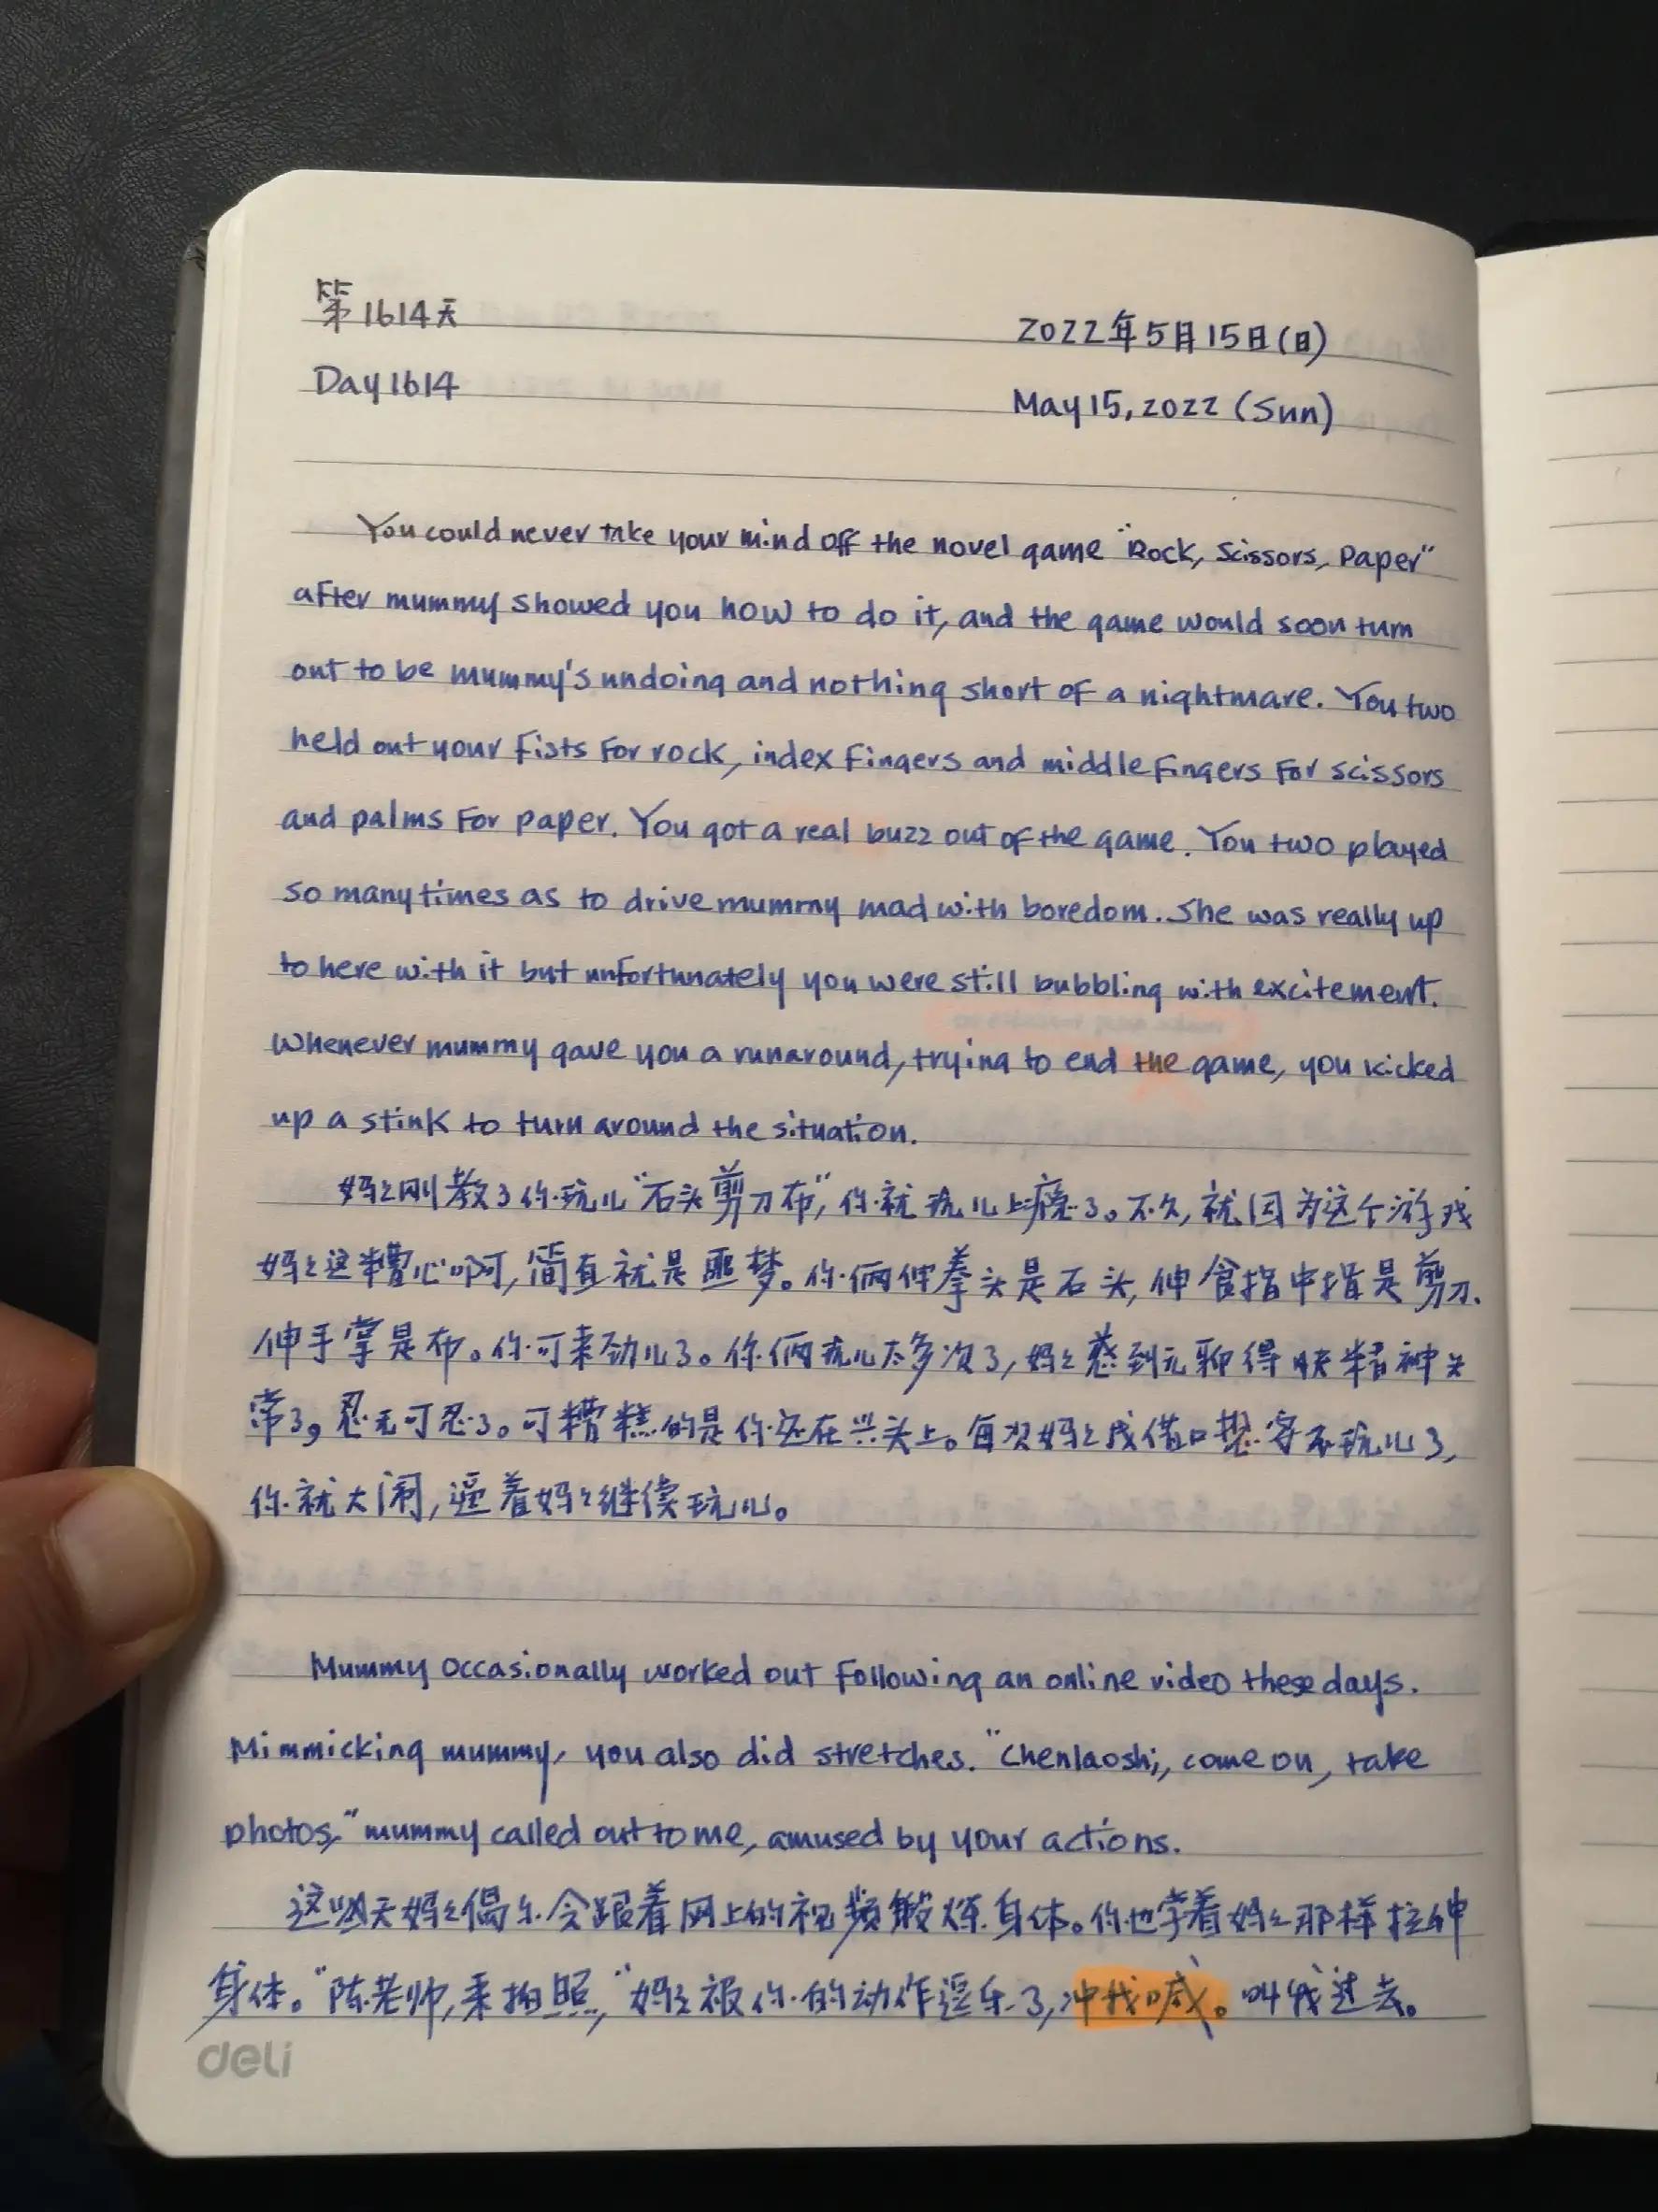 第1614天
2022年5月15日(日)
Day1614
May15,2022 (Sun)
You could never take your mind off the novel game "Rock, Scissors, Paper"
after mummy showed you how to do it, and the game would soon turn
out to be mummy's undoing and nothing short of a nightmare. You two
held out your fists for rock, index fingers and middle fingers for scissors
and palms for paper. You got a real buzz out of the game. You two played
so many times as to drive mummy mad with boredom. She was really up
to here with it but unfortunately you were still bubbling with excitement.
Whenever mummy gave you a runaround, trying to end the game, you kicked
up a stink to turn around the situation.
妈妈刚教了你玩儿"石头剪刀布",你就玩儿上瘾了。不久,就因为这个游戏
妈妈这糟心啊,简直就是噩梦。你俩伸拳头是石头,伸食指中指是剪刀、
伸手掌是布。你可来劲儿了。你俩玩儿太多次了,妈妈感到无聊得快精神失
常了,忍无可忍了。可糟糕的是你还在兴头上。每次妈妈找借口想客不玩儿了,
你就大闹,逼着妈妈继续玩儿。
Mummy occasionally worked out following an online video these days.
Mimmicking mummy, you also did stretches. "Chenlaoshi, come on, take
photos," mummy called out to me, amused by your actions.
这些天妈妈偶尔会跟着网上的视频锻炼身体。你也学着妈妈那样拉伸
身体。"陈老师,来拍照,"妈妈被你的动作逗乐了,冲我喊。叫我过去。
deli